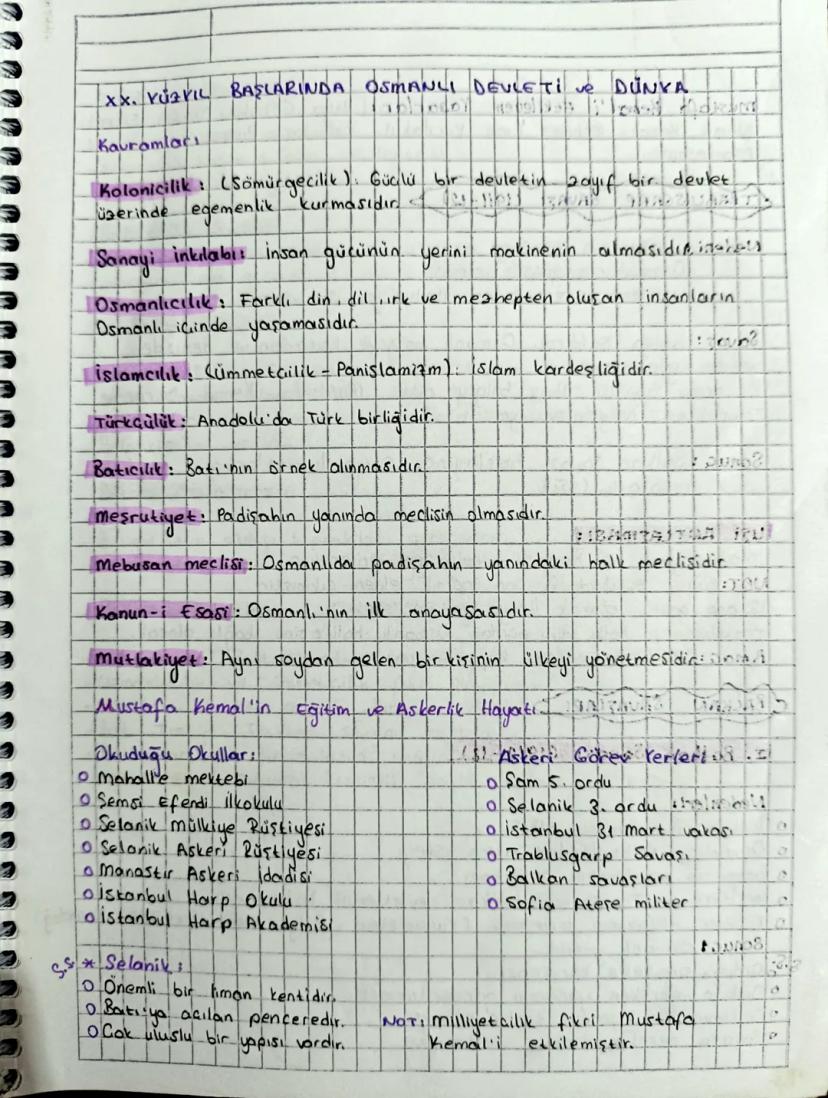 XX. YÜZYIL BAŞLARINDA OSMANLI DEVLETİ ve DÜNYA
Kavramlar:
Kolonicilik: (Sömürgecilik): Güçlü bir devletin zayıf bir devlet
üzerinde egemenlik kurmasıdır.
Sanayi inkılabı: İnsan gücünün yerini makinenin almasıdır.
Osmanlıcılık: Farklı din, dil, ırk ve mezhepten oluşan insanların
Osmanlı içinde yaşamasıdır.
İslamcılık: (Ümmetçilik - Panislamizm): İslam kardeşliğidir.
Türkçülük: Anadolu'da Türk birliğidir.
Batıcılık: Batı'nın örnek alınmasıdır.
Meşrutiyet: Padişahın yanında meclisin olmasıdır.
Mebusan meclisi: Osmanlıda padişahın yanındaki halk meclisidir.
Kanun-i Esasi: Osmanlı'nın ilk anayasasıdır.
Mutlakiyet: Aynı soydan gelen bir kişinin ülkeyi yönetmesidir.
Mustafa Kemal'in Eğitim ve Askerlik Hayatı
Okuduğu Okullar:
o Mahalle mektebi
o Şemsi Efendi İlkokulu
o Selanik Mülkiye Rüştiyesi
o Selanik Askeri Rüştiyesi
o Manastır Askeri İdadisi
o İstanbul Harp Okulu
o İstanbul Harp Akademisi
Askeri Görev Yerleri:
o Şam 5. ordu
o Selanik 3. ordu
o İstanbul 31 Mart vakası
o Trablusgarp Savaşı
o Balkan savaşları
o Sofia Ateşe militer
Ş.S * Selanik:
o Önemli bir liman kentidir.
o Batı'ya açılan penceredir.
o Çok uluslu bir yapısı vardır.
NOT: milliyetçilik fikri Mustafa
Kemal'i etkilemiştir.